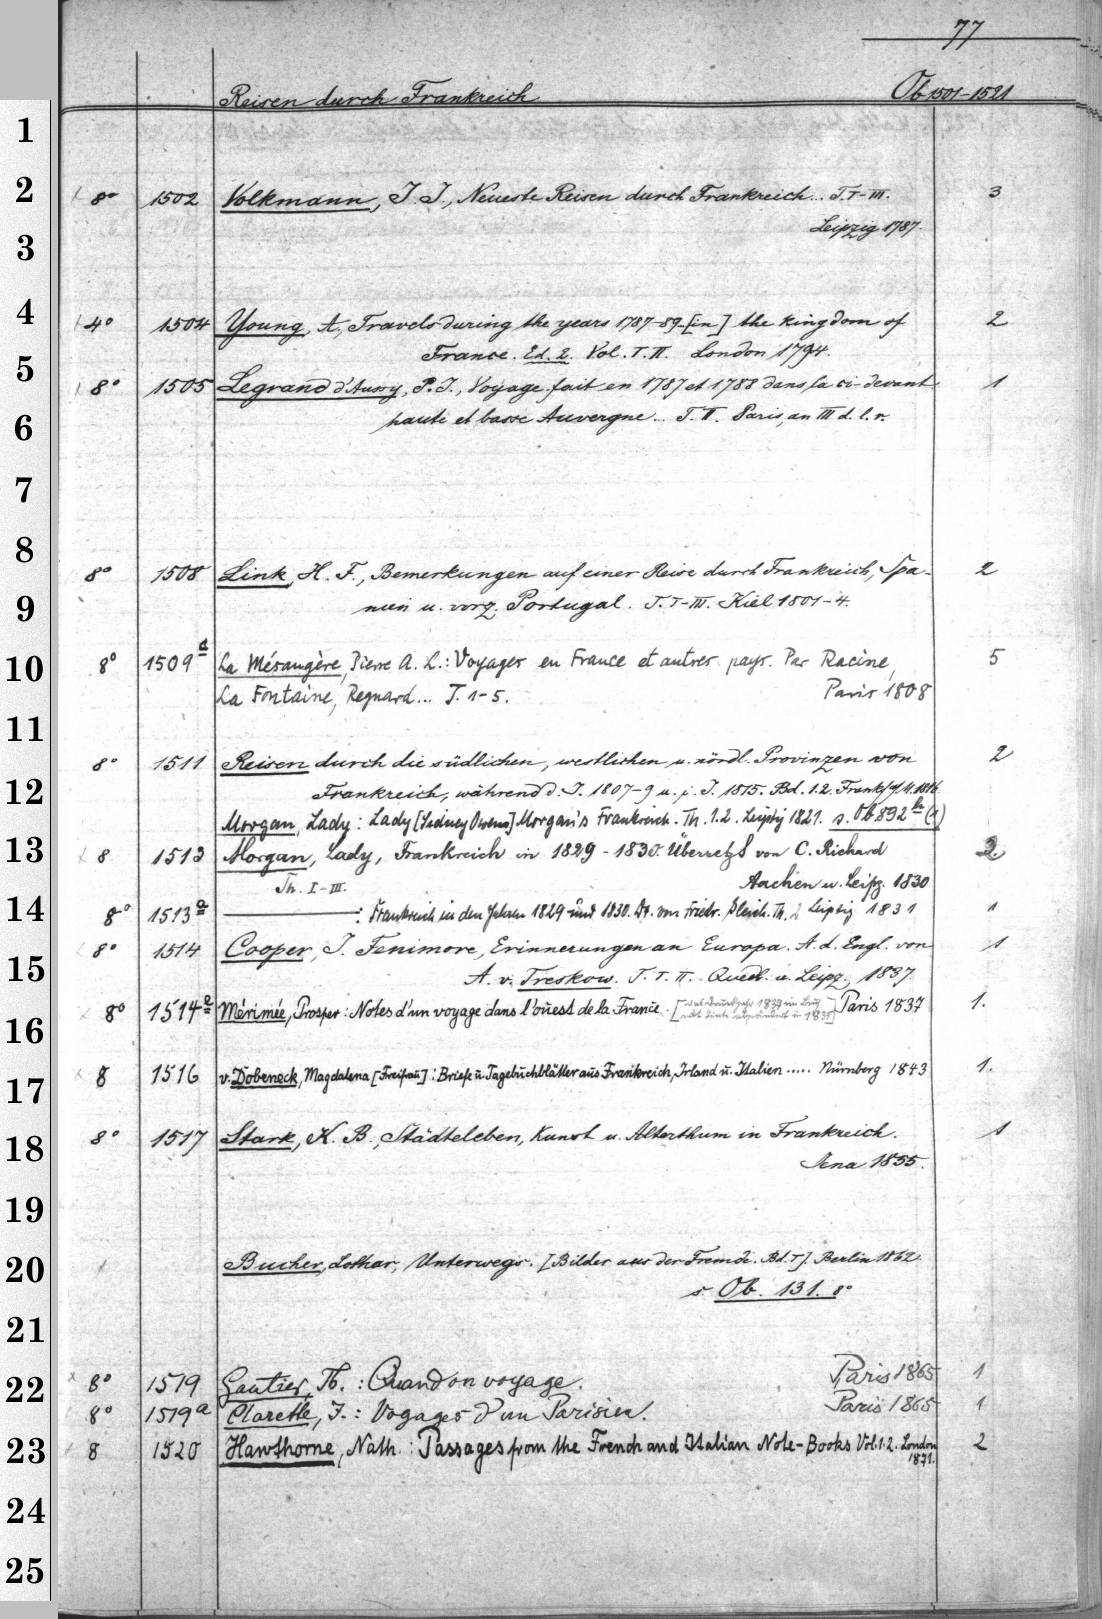 77
Reisen durch Frankreich Ob 1501-1521
1
2 8° 1502 Volkmann, J. J., Neueste Reisen durch Frankreich... T. I-III. 3
Leipzig 1787.
3
4 4° 1504 Young, A., Travels during the years 1787-89 [in] the kingdom of 2
France. Ed. 2. Vol. I. II. London 1794.
5 8° 1505 Legrand d'Aussy, P. J., Voyage fait en 1787 et 1788 dans la ci-devant 1
6 haute et basse Auvergne... T. II. Paris, an III d. l. r.
7
8 8° 1508 Link, H. F., Bemerkungen auf einer Reise durch Frankreich, Spa- 2
9 nien u. vorz. Portugal. T. I-III. Kiel 1801-4.
10 8° 1509a La Mésangère, Pierre A. L.: Voyages en France et autres pays. Par Racine, 5
La Fontaine, Regnard... T. 1-5. Paris 1808
11
8° 1511 Reisen durch die südlichen, westlichen u. nördl. Provinzen von 2
12 Frankreich, während d. J. 1807-9 u. i. J. 1815. Bd. 1.2. Frankf a/M. 1816.
Morgan, Lady: Lady [Sidney Owens] Morgan's Frankreich. Th. 1.2. Leipzig 1821. s. Ob 892
13 8 1513 Morgan, Lady, Frankreich in 1829-1830. Übersetzt von C. Richard
Th. I-III. Aachen u. Leipz. 1830
14 8° 1513a : Frankreich in den Jahren 1829 und 1830. von Friedr. Th. 2 Leipzig 1831 1
8° 1514 Cooper, J. Fenimore, Erinnerungen an Europa. A. d. Engl. von 1
15 A. v. Treskow. T. I. II. Quedl. u. Leipz. 1837.
16 8° 1514a Mérimée, Prosper: Notes d'un voyage dans l'ouest de la France. Paris 1837 1.
17 8 1516 v. Dobeneck, Magdalena [Freifrau]: Briefe u. Tagebuchblätter aus Frankreich, Irland u. Italien..... Nürnberg 1843 1.
18 8° 1517 Stark, K. B., Städteleben, Kunst u. Alterthum in Frankreich. 1
Jena 1855.
19
20 Bucher, Lothar, Unterwegs. [Bilder aus der Fremde. Bd. I]. Berlin 1862.
s. Ob. 131. 8°
21
22 8° 1519 Gautier, Th.: Quand on voyage. Paris 1865 1
8° 1519a Claretie, J.: Voyages d'un Parisien. Paris 1865 1
23 8 1520 Hawthorne, Nath.: Passages from the French and Italian Note-Books Vol. 1.2. London 2
1871.
24
25